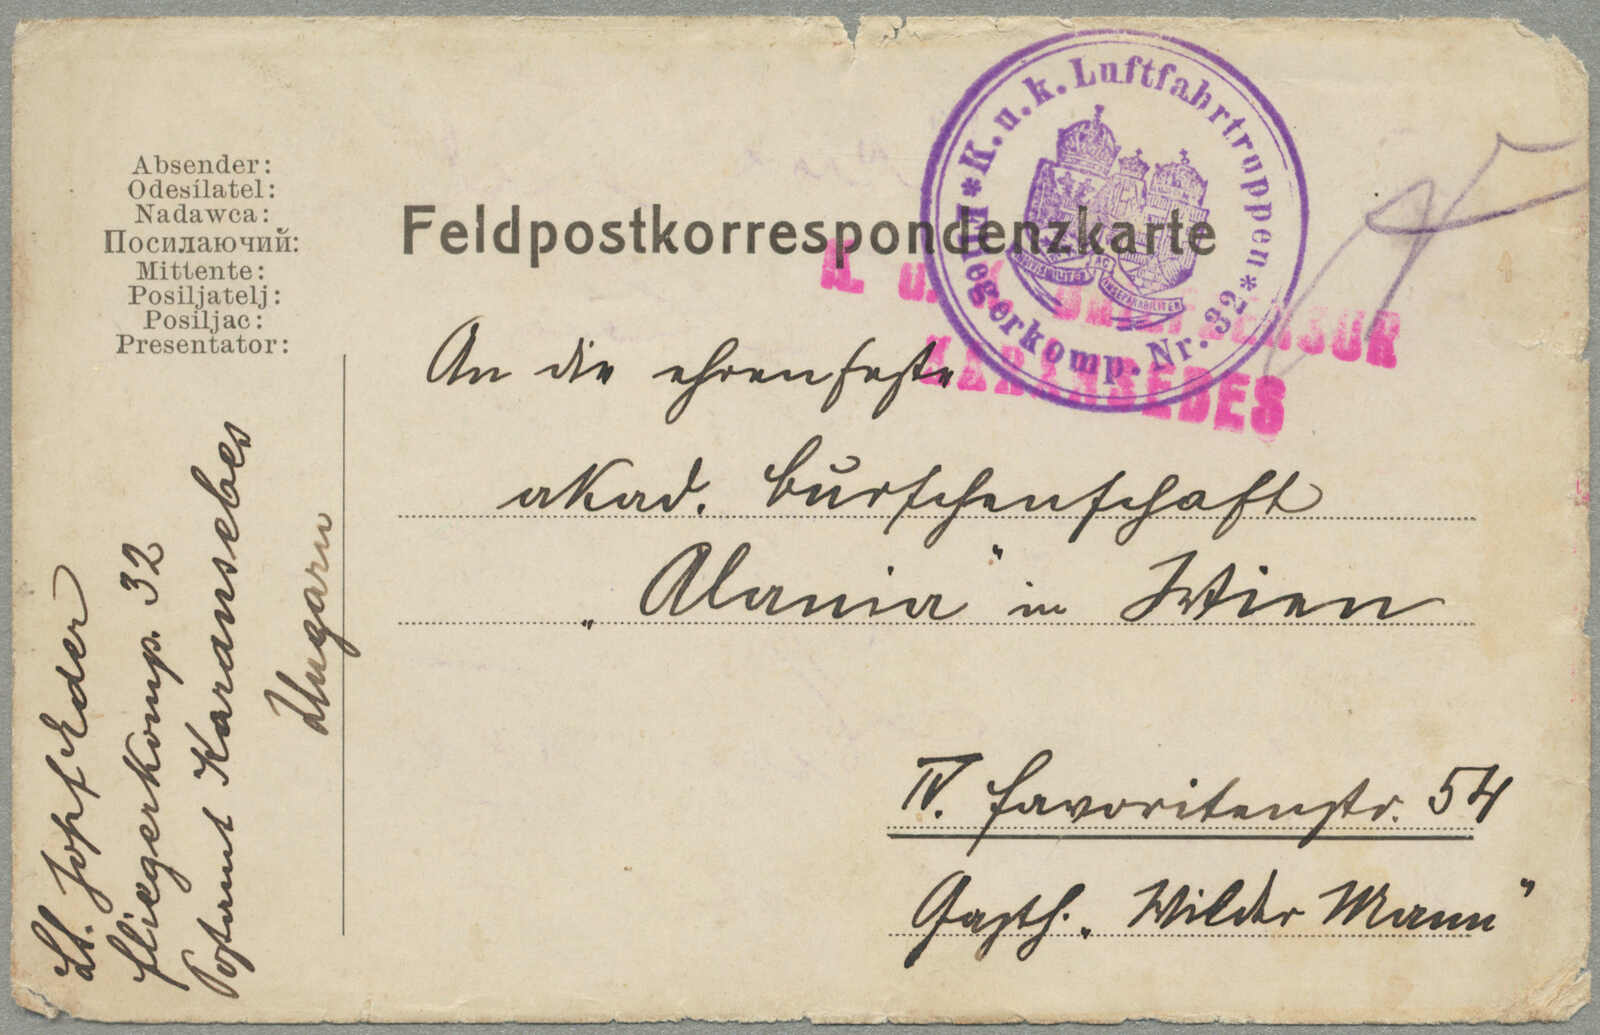 Absender:
Odesílatel:
Nadawca:
Посилаючий:
Mittente:
Posiljatelj:
Posiljac:
Presentator:
Lt. Josef Eder
Fliegerkomp. 32
Postamt Karansebes
Ungarn
Feldpostkorrespondenzkarte
* K. u. k. Luftfahrtruppen *
Fliegerkomp. Nr. 32
INDIVISIBILITER AC INSEPARABILITER
K. u. K. BRIEFZENSUR
KARANSEBES
An die ehrenfeste
akad. Burschenschaft
„Alania" in Wien
IV. Favoritenstr. 54
Gasth. „Wilder Mann"